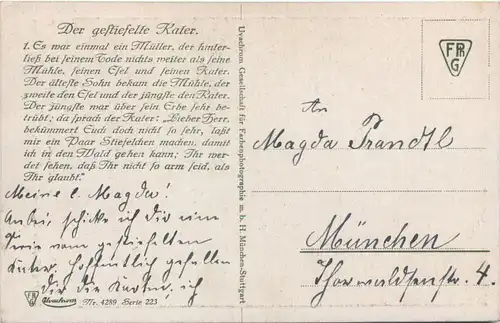 Der gestiefelte Kater.
1. Es war einmal ein Müller, der hinter-
ließ bei seinem Tode nichts weiter als seine
Mühle, seinen Esel und seinen Kater.
Der älteste Sohn bekam die Mühle, der
zweite den Esel und der jüngste den Kater.
Der jüngste war über sein Erbe sehr be-
trübt; da sprach der Kater: „Lieber Herr,
bekümmert Euch doch nicht so sehr, laßt
mir ein Paar Stiefelchen machen, damit
ich in den Wald gehen kann; Ihr wer-
det sehen, daß Ihr nicht so arm seid, als
Ihr glaubt."
Meine l. Magda!
Anbei, schicke ich dir eine
Serie vom gestiefelten
Kater. Hoffentlich gefallen
dir die Karten, ich
FPRG Uvachrom Nr. 4289 Serie 223
Uvachrom Gesellschaft für Farbenphotographie m. b. H. München-Stuttgart
FPRG
An
Magda Prandtl
München
Thorwaldsenstr. 4.